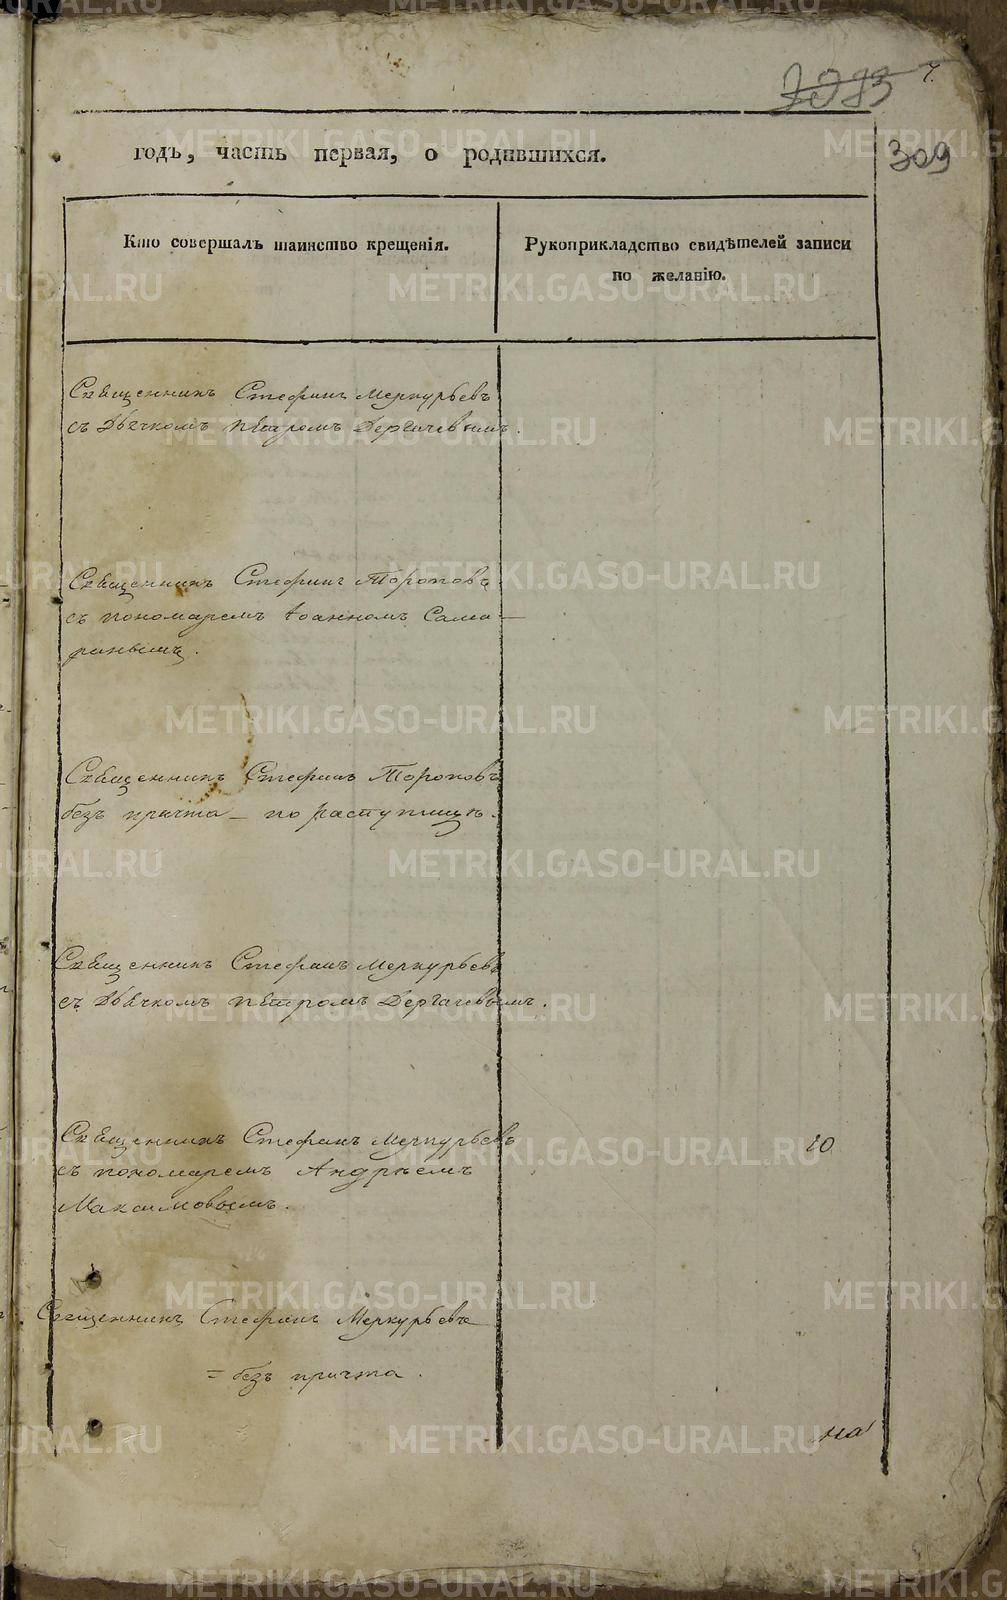 7.
309
годъ, часть первая, о родившихся.
Кто совершалъ таинство крещенія.
Рукоприкладство свидѣтелей записи
по желанію.
Священникъ Стефанъ Меркурьевъ
съ Дьячкомъ Петромъ Дергачевымъ.
Священникъ Стефанъ Тороповъ
съ пономаремъ Іоанномъ Сама-
ринымъ.
Священникъ Стефанъ Тороповъ
безъ причта – по
Священникъ Стефанъ Меркурьевъ
съ Дьячкомъ Петромъ Дергачевымъ.
Священникъ Стефанъ Меркурьевъ
съ пономаремъ Андреемъ
Максимовымъ.
10
Священникъ Стефанъ Меркурьевъ
= безъ причта.
на
METRIKI.GASO-URAL.RU